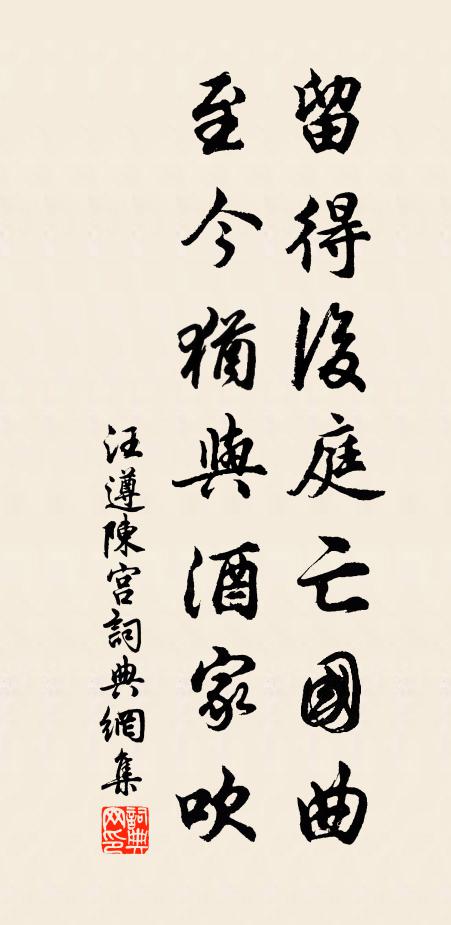 留得後庭亡國曲
至今猶與酒家吹
汪遵陳宮詞典網集
詞典網印